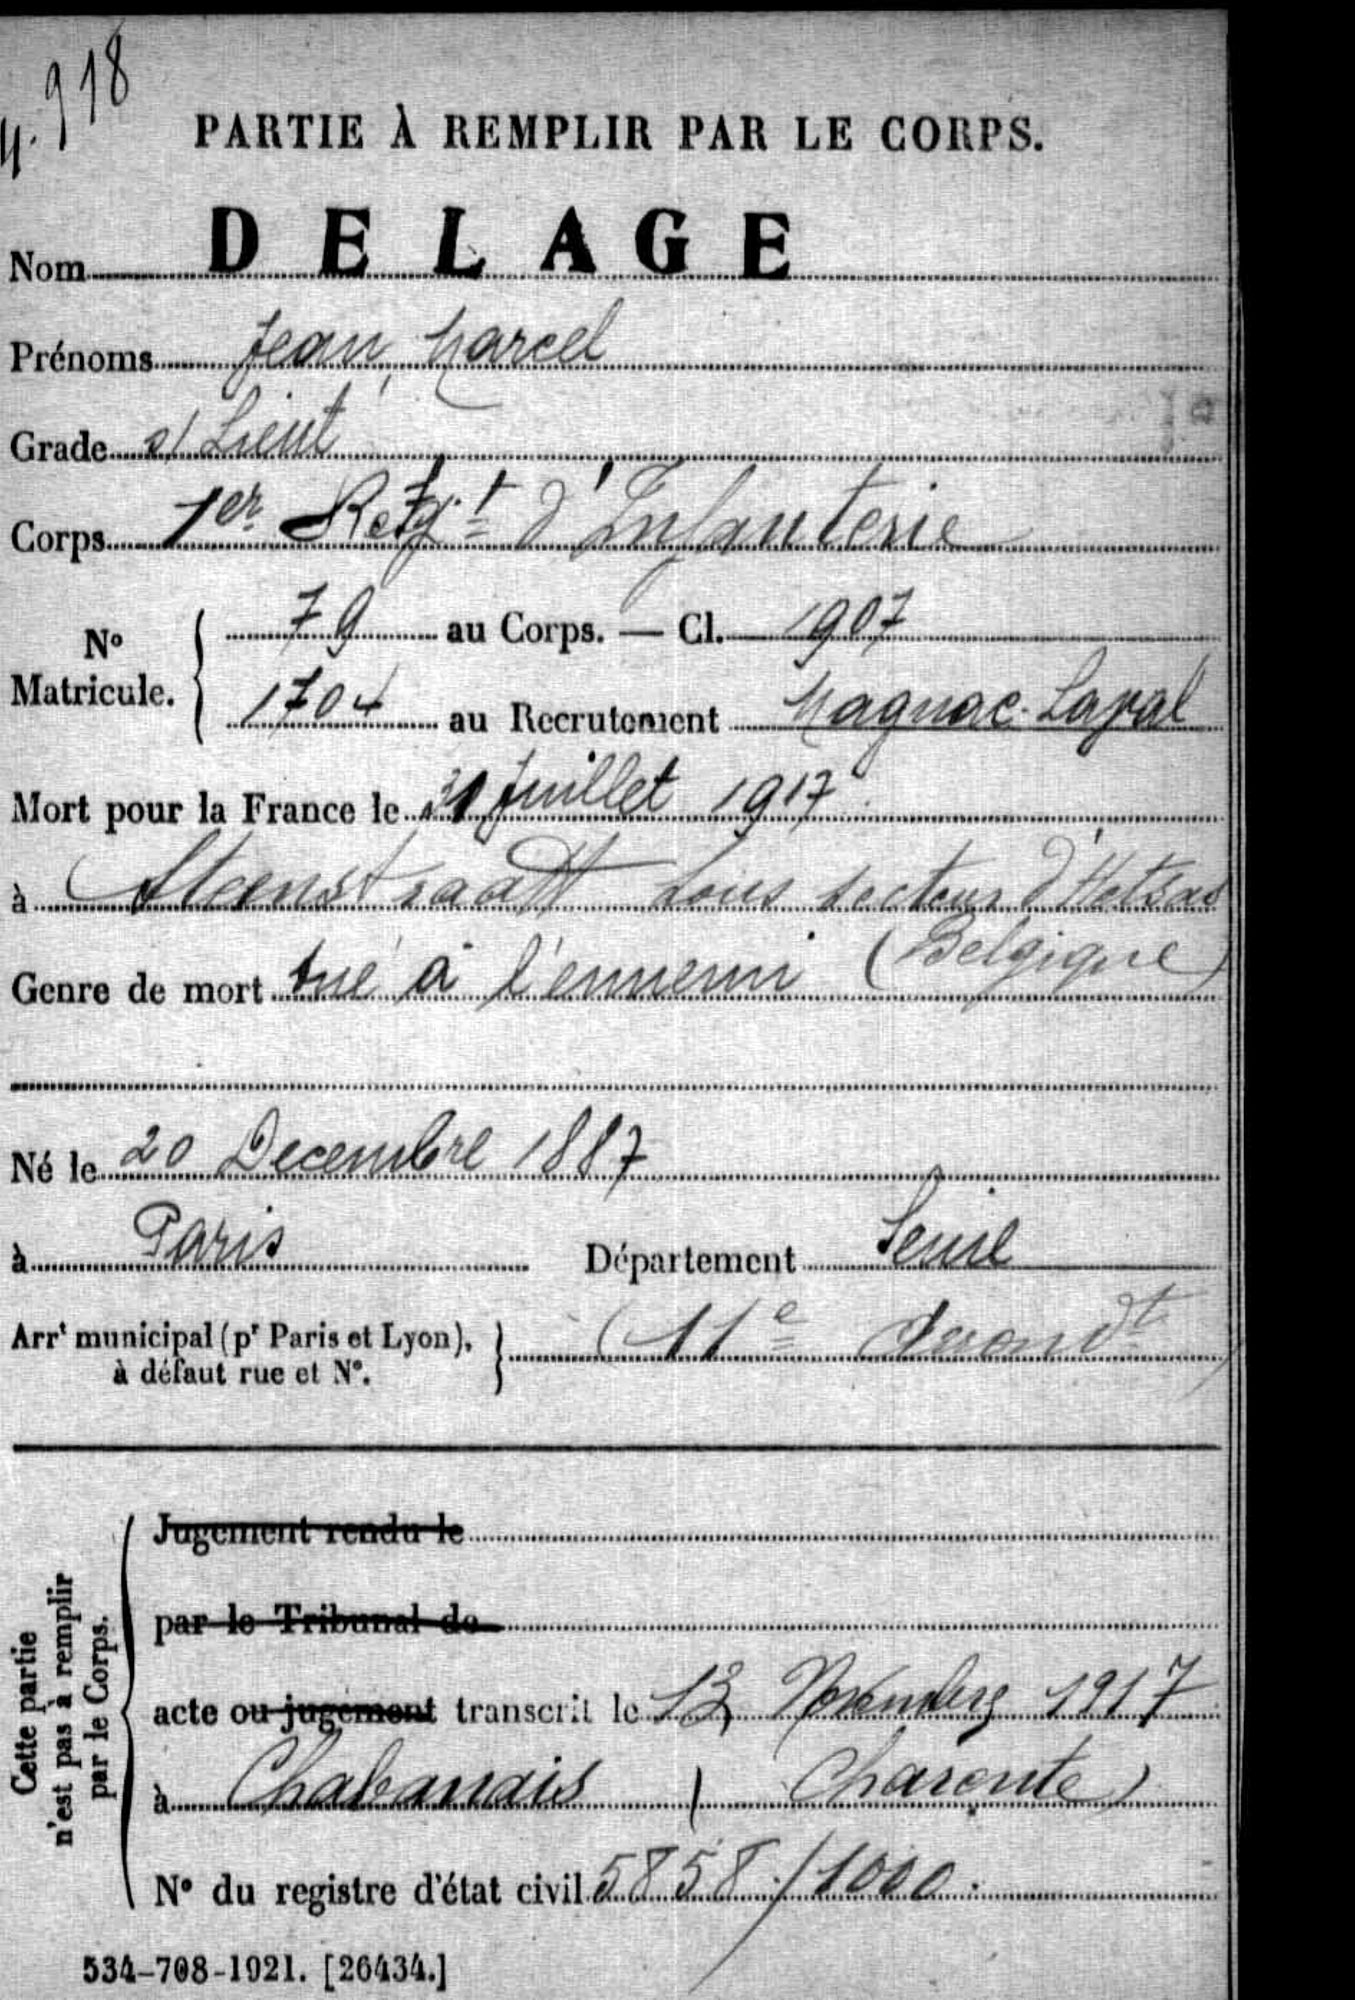 4.918
PARTIE À REMPLIR PAR LE CORPS.
Nom DELAGE
Prénoms Jean, Marcel
Grade s/ Lieut
Corps 1er Régt d'Infanterie
N° Matricule. { 79 au Corps. — Cl. 1907
1704 au Recrutement Magnac-Laval
Mort pour la France le 31 Juillet 1917
à Steenstraatt sous secteur d'Hetsas
(Belgique)
Genre de mort tué à l'ennemi
Né le 20 Decembre 1887
à Paris Département Seine
Arrt municipal (pr Paris et Lyon), à défaut rue et N°. } (11e Arrondt)
Cette partie n'est pas à remplir par le Corps.
Jugement rendu le
par le Tribunal de
acte ou jugement transcrit le 13 Novembre 1917
à Chabanais (Charente)
N° du registre d'état civil 5858/1000.
534-708-1921. [26434.]